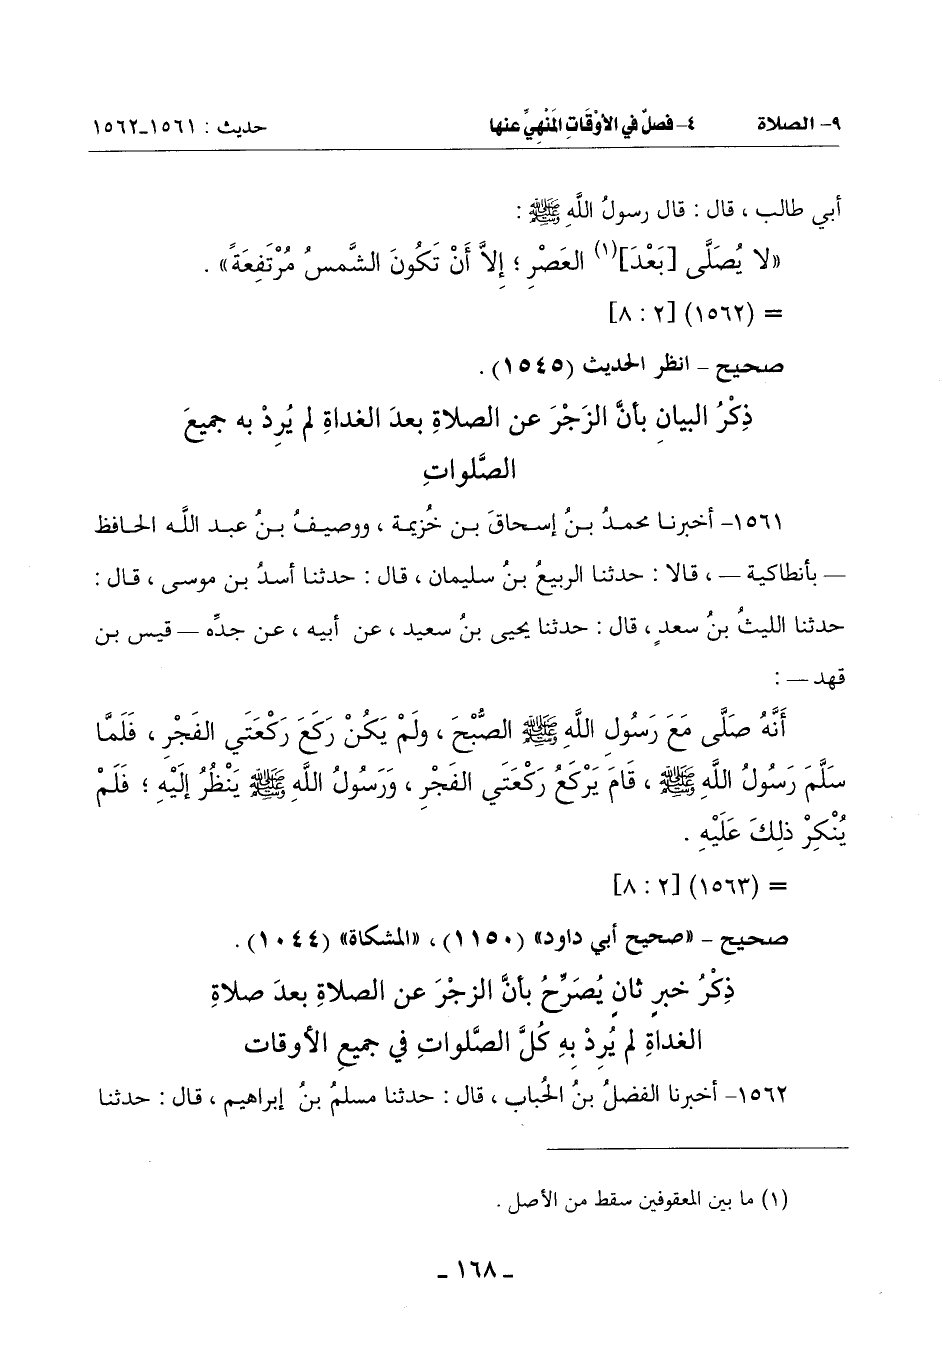 ٩- الصلاة ٤- فصلٌ في الأوْقَاتِ المَنْهِيِّ عنها حديث : ١٥٦١-١٥٦٢
أبي طالب ، قال : قال رسولُ اللَّهِ ﷺ :
«لا يُصَلَّى [بَعْدَ](١) العَصْرِ ؛ إِلاَّ أَنْ تَكُونَ الشَّمسُ مُرْتَفِعَةً» .
= (١٥٦٢) [٢ : ٨]
صحيح - انظر الحديث (١٥٤٥) .
ذِكْرُ البيانِ بأنَّ الزَجْرَ عن الصلاةِ بعدَ الغداةِ لم يُرِدْ به جميعَ
الصَّلواتِ
١٥٦١- أخبرنا محمدُ بنُ إسحاقَ بن خُزيمة ، ووصيفُ بنُ عبد اللَّه الحافظ
— بأنطاكية — ، قالا : حدثنا الربيعُ بنُ سليمان ، قال : حدثنا أسدُ بن موسى ، قال :
حدثنا الليثُ بنُ سعدٍ ، قال : حدثنا يحيى بنُ سعيد ، عن أبيه ، عن جدِّه — قيس بن
قهد — :
أَنَّهُ صَلَّى مَعَ رَسُولِ اللَّهِ ﷺ الصُّبْحَ ، ولَمْ يَكُنْ رَكَعَ رَكْعَتَي الفَجْرِ ، فَلَمَّا
سَلَّمَ رَسُولُ اللَّهِ ﷺ ، قَامَ يَرْكَعُ رَكْعَتَي الفَجْرِ ، وَرَسُولُ اللَّهِ ﷺ يَنْظُرُ إِلَيْهِ ؛ فَلَمْ
يُنْكِرْ ذلِكَ عَلَيْهِ .
= (١٥٦٣) [٢ : ٨]
صحيح - «صحيح أبي داود» (١١٥٠) ، «المشكاة» (١٠٤٤) .
ذِكْرُ خبرٍ ثانٍ يُصَرِّحُ بأنَّ الزجْرَ عن الصلاةِ بعدَ صلاةِ
الغداةِ لم يُرِدْ بِهِ كُلَّ الصَّلواتِ في جميعِ الأوقات
١٥٦٢- أخبرنا الفضلُ بنُ الحُباب ، قال : حدثنا مسلمُ بنُ إبراهيم ، قال : حدثنا
(١) ما بين المعقوفين سقط من الأصل .
- ١٦٨ -